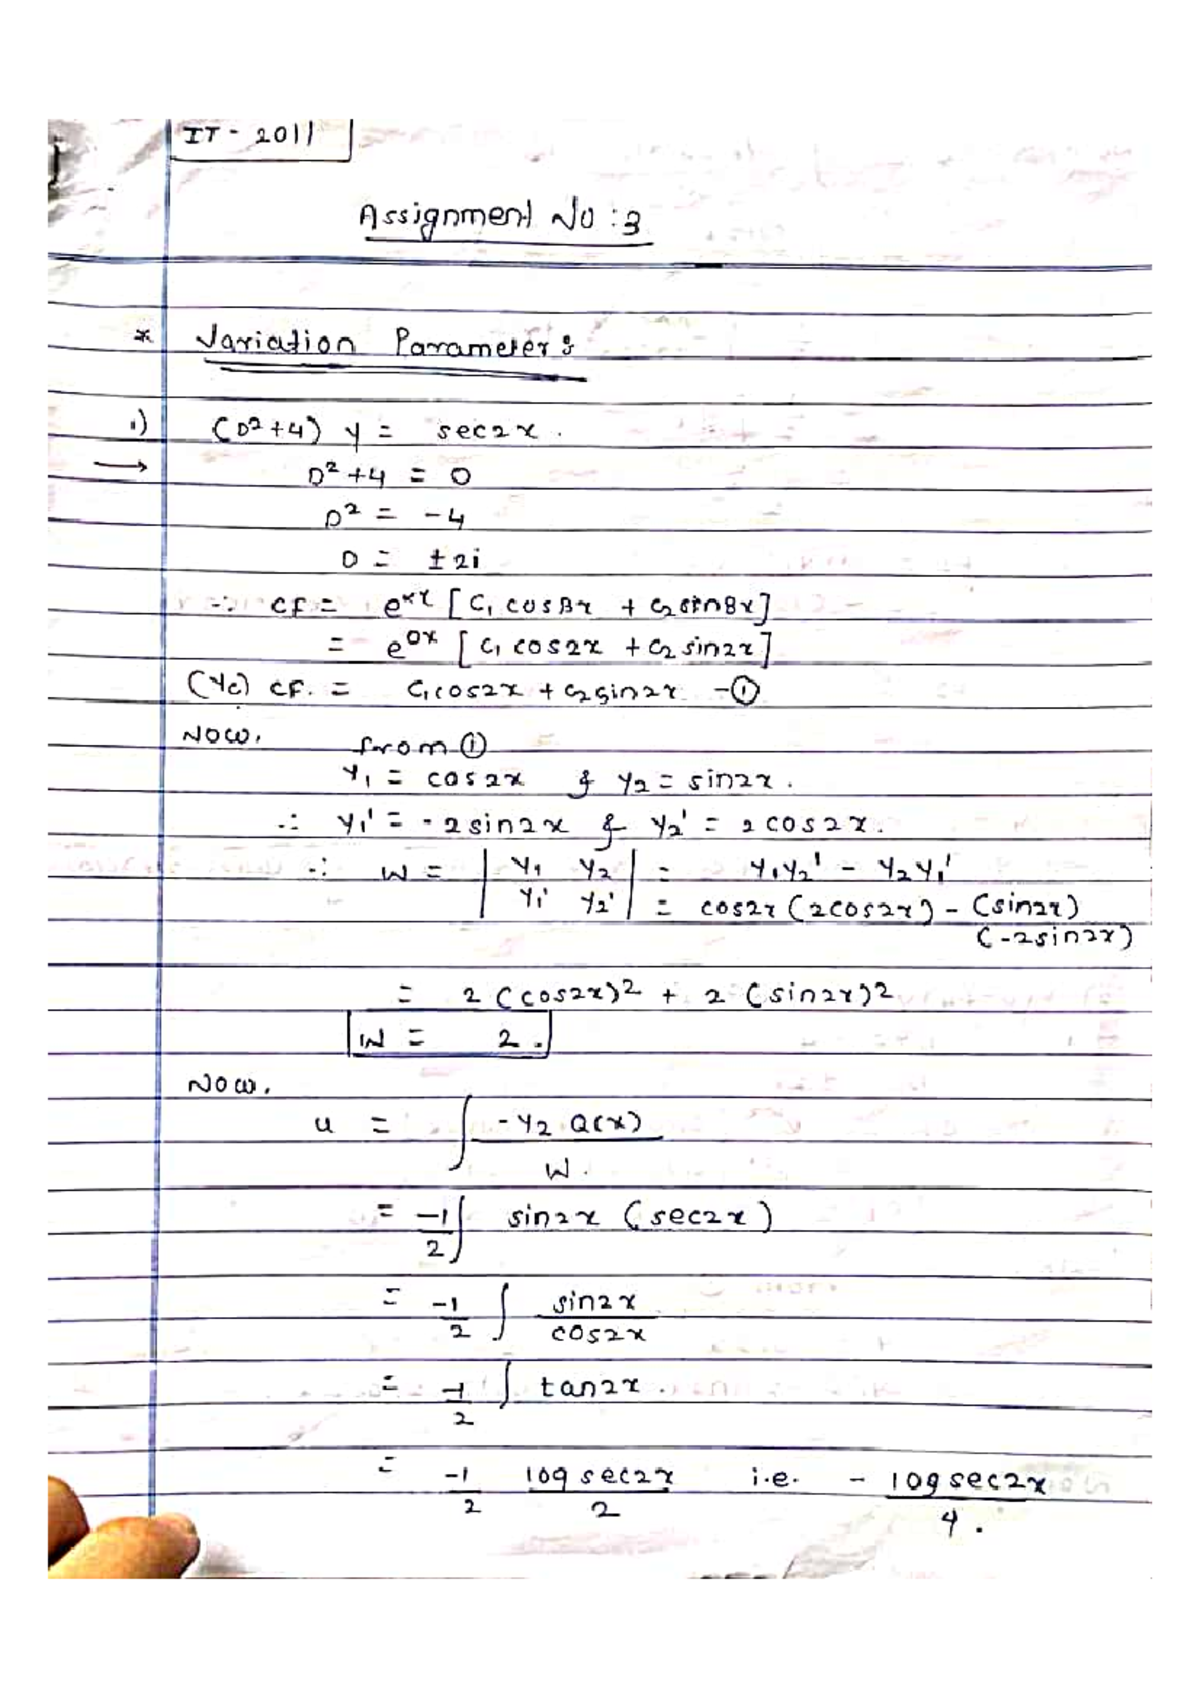 IT - 2011
Assignment No : 3
* Variation Parameters
1) (D²+4) y = sec2x.
→ D²+4 = 0
D² = -4
D = ±2i
∴ CF = e^αx [C₁ cosBx + C₂ sinBx]
= e^0x [C₁ cos2x + C₂ sin2x]
(Yc) CF. = C₁cos2x + C₂sin2x -①
Now, from ①
Y₁ = cos2x & Y₂ = sin2x.
∴ Y₁' = -2sin2x & Y₂' = 2cos2x.
∴ W = | Y₁ Y₂ | = Y₁Y₂' - Y₂Y₁'
| Y₁' Y₂' | = cos2x (2cos2x) - (sin2x)
(-2sin2x)
= 2 (cos2x)² + 2 (sin2x)²
W = 2.
Now,
u = ∫ -Y₂ Q(x)
W.
= -1/2 ∫ sin2x (sec2x)
= -1/2 ∫ sin2x/cos2x
= -1/2 ∫ tan2x.
= -1/2 log sec2x/2 i.e. - log sec2x/4.